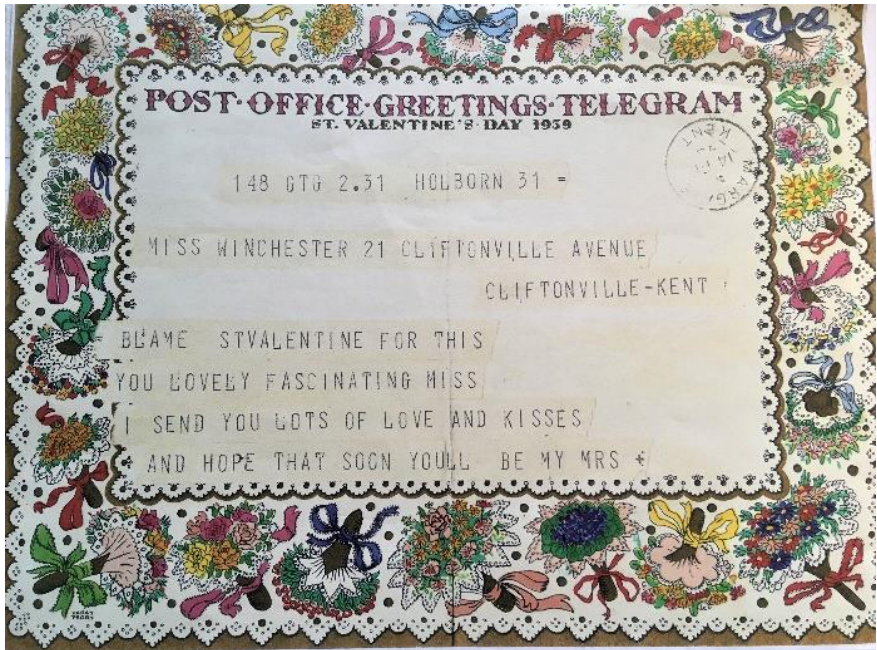 POST·OFFICE·GREETINGS·TELEGRAM
ST. VALENTINE'S·DAY 1939
KENT
MARG
148 GTG 2.31 HOLBORN 31 =
MISS WINCHESTER 21 CLIFTONVILLE AVENUE
CLIFTONVILLE-KENT
BLAME STVALENTINE FOR THIS
YOU LOVELY FASCINATING MISS
I SEND YOU LOTS OF LOVE AND KISSES
AND HOPE THAT SOON YOULL BE MY MRS